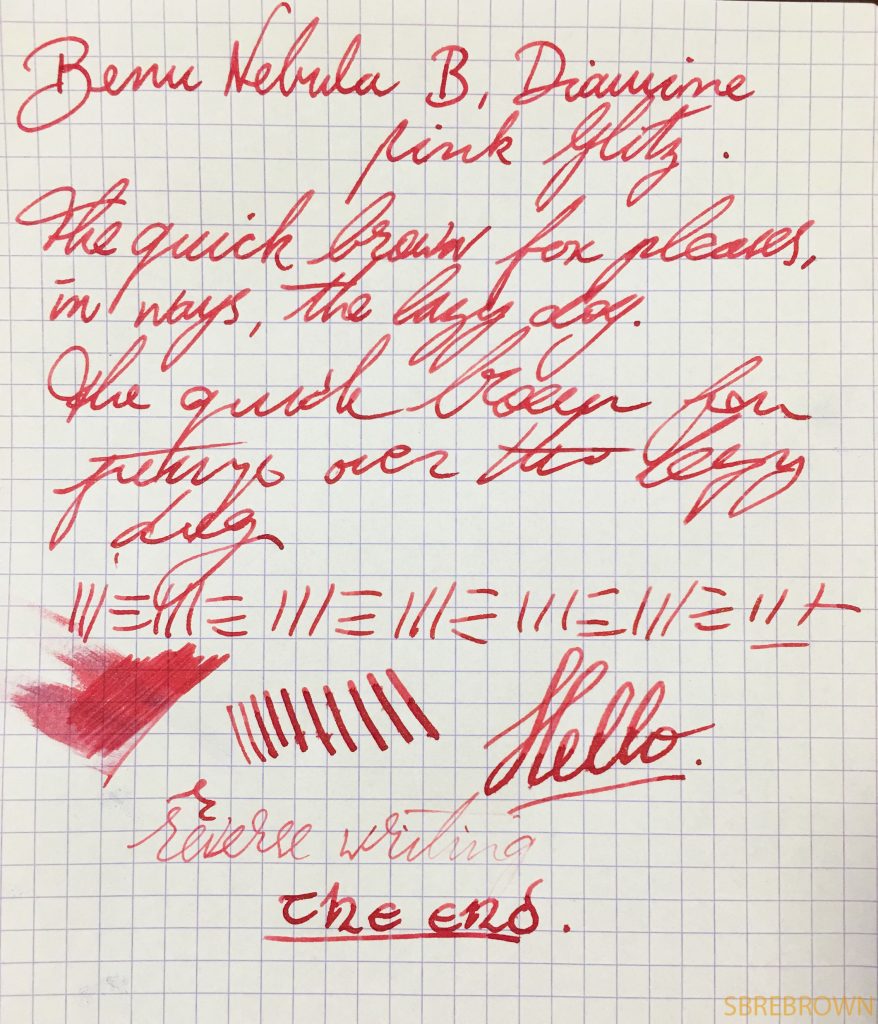 Benu Nebula B, Diamine
pink Glitz.
The quick brown fox pleases,
in ways, the lazy dog.
The quick brown fox
jumps over the lazy
dog
Hello.
reverse writing
The end.
SBREBROWN